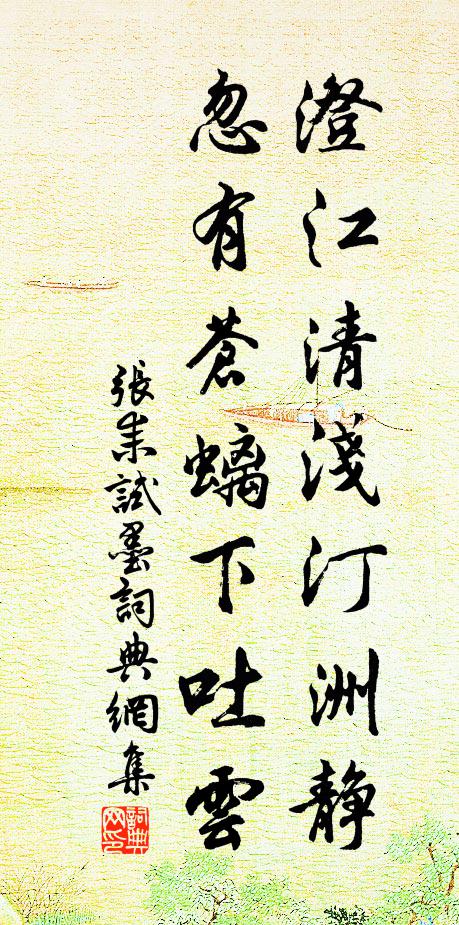 澄江清淺汀洲靜
忽有蒼螭下吐雲
張耒試墨詞典網集
詞典網印